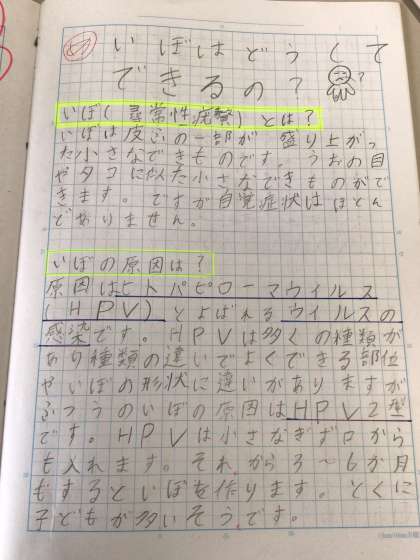 いぼはどうして
できるの?
?
いぼ(尋常性疣贅)とは?
いぼは皮ふの一部が盛り上がっ
た小さなできものです。うおの目
やタコに似た小さなできものがで
きます。ですが自覚症状はほとん
どありません。
いぼの原因は?
原因はヒトパピローマウイルス
(HPV)とよばれるウイルスの
感染です。HPVは多くの種類が
あり種類の違いでよくできる部位
やいぼの形状に違いがありますが
ふつうのいぼの原因はHPV2型
です。HPVは小さなきず口から
も入れます。それから3~6か月
もするといぼを作ります。とくに
子どもが多いそうです。